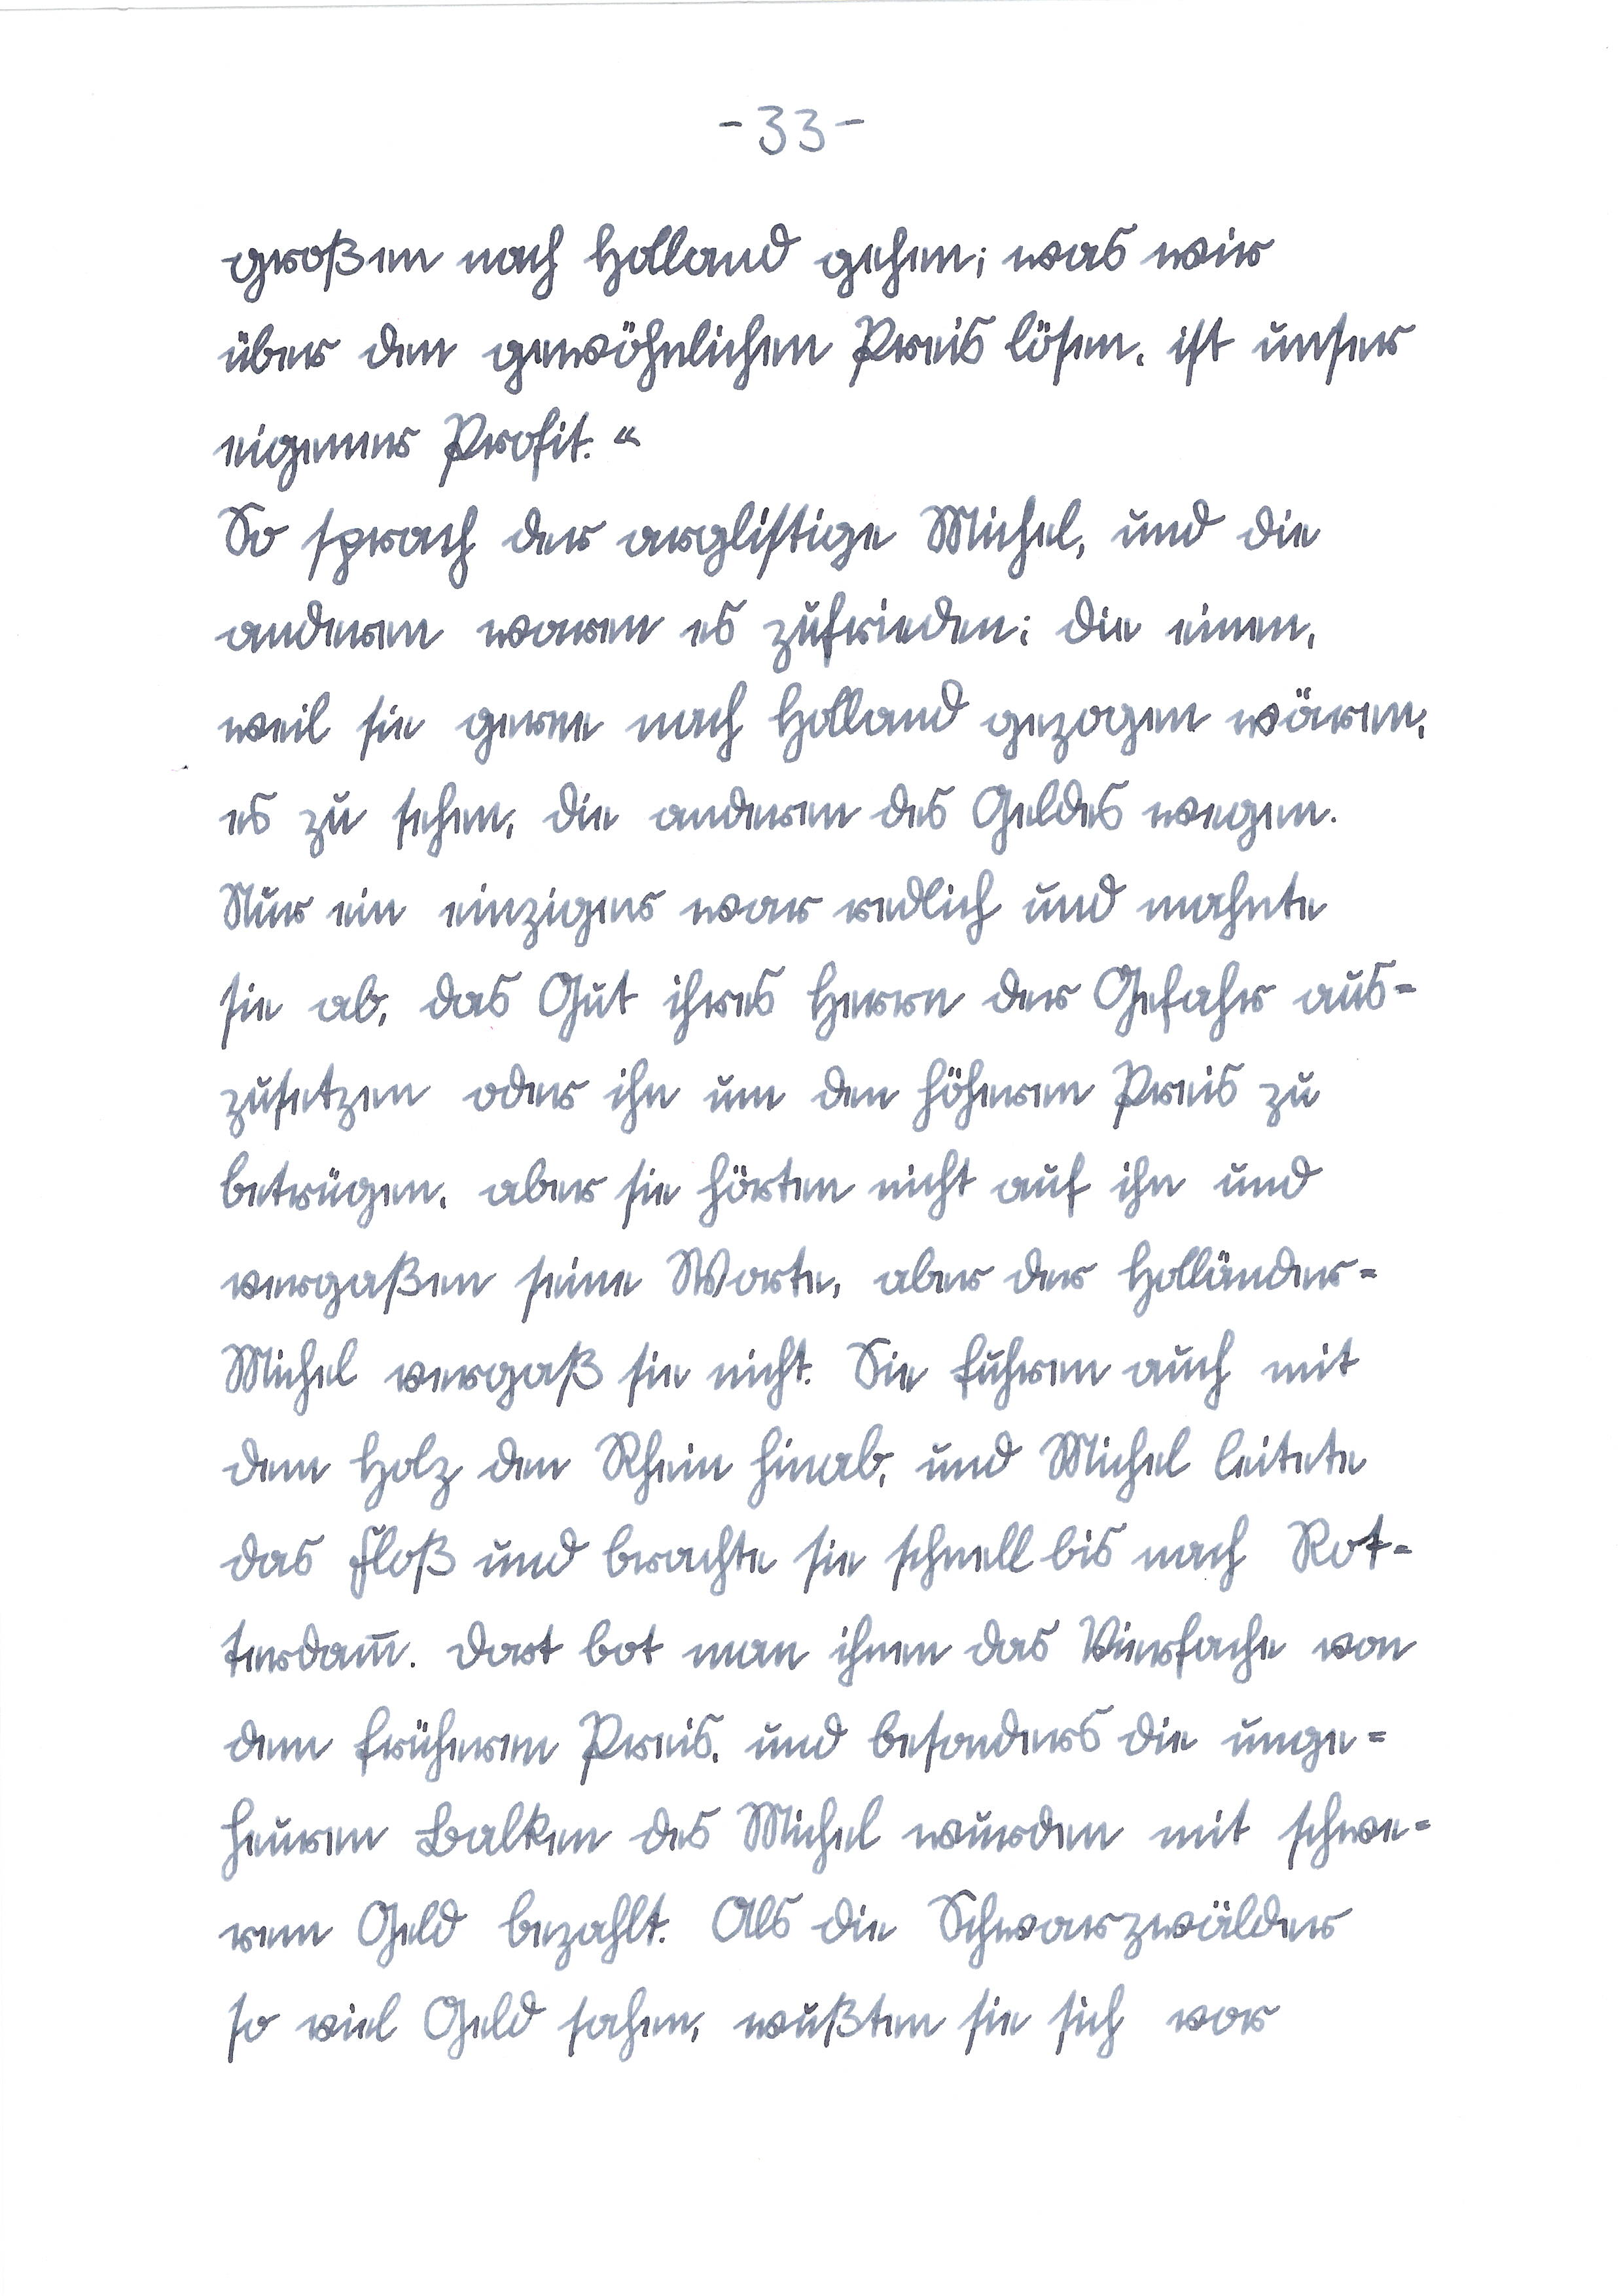 -33-
großen nach Holland gehen; was wir
über den gewöhnlichen Preis lösen, ist unser
eigener Profit.“
So sprach der arglistige Michel, und die
anderen waren es zufrieden: die einen,
weil sie gerne nach Holland gezogen wären,
es zu sehen, die anderen des Geldes wegen.
Nur ein einziger war redlich und mahnte
sie ab, das Gut ihres Herrn der Gefahr aus-
zusetzen oder ihn um den höheren Preis zu
betrügen, aber sie hörten nicht auf ihn und
vergaßen seine Worte, aber der Holländer-
Michel vergaß sie nicht. Sie fuhren auch mit
dem Holz den Rhein hinab, und Michel leitete
das Floß und brachte sie schnell bis nach Rot-
terdam̅. Dort bot man ihnen das Vierfache von
dem früheren Preis, und besonders die unge-
heuren Balken des Michel wurden mit schwe-
rem Geld bezahlt. Als die Schwarzwälder
so viel Geld sahen, wußten sie sich vor